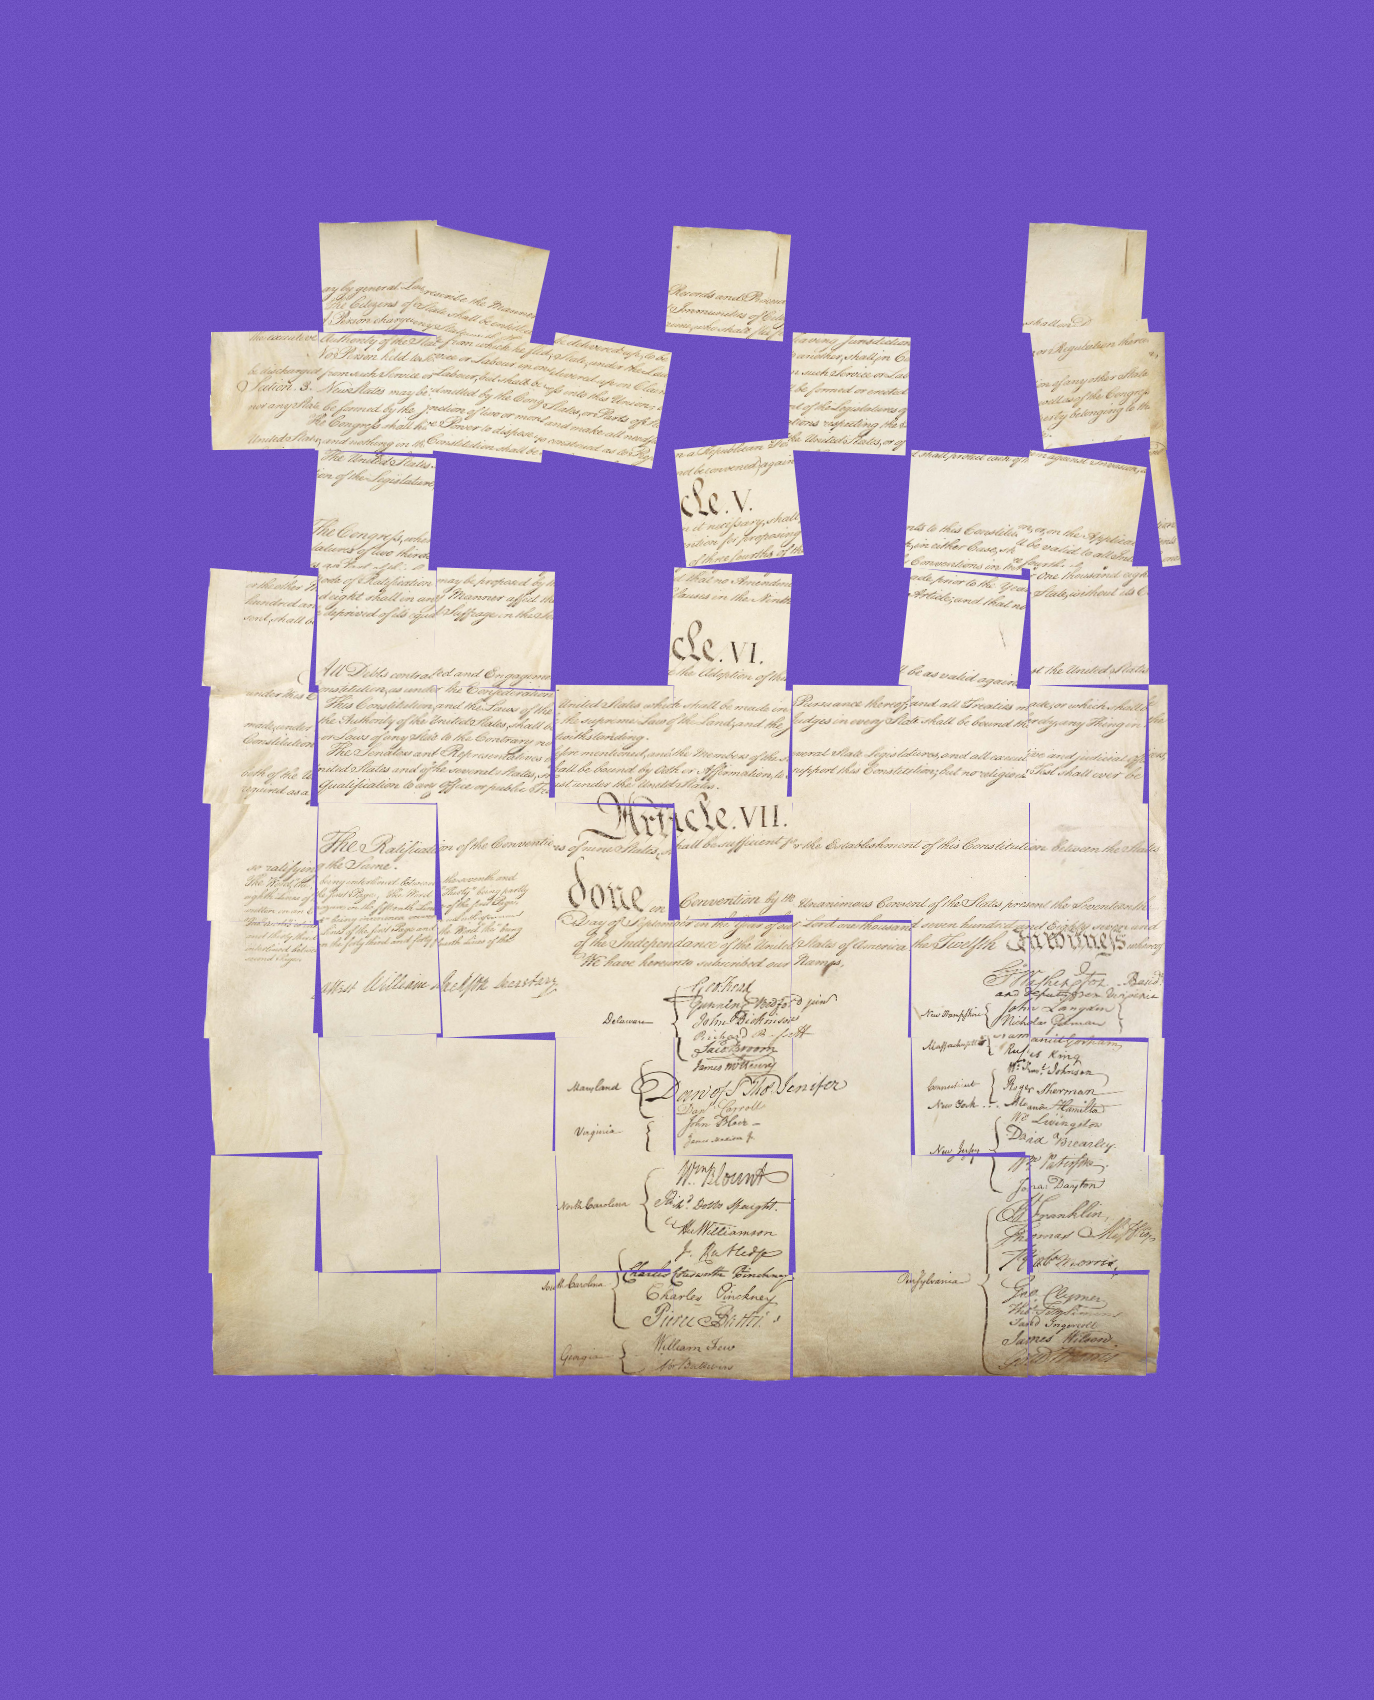 ay by general Law
prescribe the Manner
Records and Proceed
the Citizens of
State shall be entitled
Immunities of Citiz
A Person charged
who shall flee
shall on
Authority of the State from which he fled,
be delivered up, to be
aining Jurisdiction
or Regulation therein
No Person held to Service or Labour in one
State, under the Laws
another, shall, in Co
be discharged from such Service or Labour, but shall be
delivered up on Claim
such Service or Lab
Section. 3. New States may be admitted by the Cong
into this Union;
be formed or erected
of any other State
nor any State be formed by the Junction of two or more
States, or Parts of
of the Legislatures
as well as of the Congress
The Congress shall have Power to dispose
and make all needful
respecting the
belonging to the
United States; and nothing in this Constitution shall be
so construed as to
the United States, or of
The United States
in a Republican
shall protect each of
against Invasion;
of the Legislature
not be convened) against
cle. V.
The Congress, whe
it necessary, shall
to this Constitution, or, on the Application
lations of two thirds
ention for proposing
in either Case, shall be valid to all Inte
of three fourths of the
Conventions in three fourths
or the other Mode of Ratification may be proposed by the
that no Amendment
made prior to the Year one thousand eight
hundred and eight shall in any Manner affect the
Clauses in the Ninth
Article; and that no State, without its C
sent, shall be deprived of its equal Suffrage in the
cle. VI.
All Debts contracted and Engagemen
the Adoption of this
be as valid against the United States
under this Constitution, as under the Confederation
This Constitution, and the Laws of the United States which shall be made in Pursuance thereof; and all Treaties made, or which shall be
made, under the Authority of the United States, shall be the supreme Law of the Land; and the Judges in every State shall be bound thereby, any Thing in the
Constitution or Laws of any State to the Contrary notwithstanding.
The Senators and Representatives before mentioned, and the Members of the several State Legislatures, and all executive and judicial Officers,
both of the United States and of the several States, shall be bound by Oath or Affirmation, to support this Constitution; but no religious Test shall ever be
required as a Qualification to any Office or public Trust under the United States.
Article. VII.
The Ratification of the Conventions of nine States, shall be sufficient for the Establishment of this Constitution between the States
so ratifying the Same.
The Word, the, being interlined between the seventh and
eighth Lines of the first Page, The Word "Thirty" being partly
written on an Erazure in the fifteenth Line of the first Page,
done in Convention by the Unanimous Consent of the States present the Seventeenth
Day of September in the Year of our Lord one thousand seven hundred and Eighty seven and
and thirty third Lines of the first Page and the Word the being
of the Independance of the United States of America the Twelfth In witness whereof
interlined between the forty third and forty fourth Lines of the
We have hereunto subscribed our Names,
second Page.
Attest William Jackson Secretary
Go Washington Presidt
and deputy from Virginia
Delaware
Geo: Read
Gunning Bedford jun
John Dickinson
Richard Bassett
Jaco: Broom
Maryland
James McHenry
Dan of St Thos Jenifer
Danl Carroll
Virginia
John Blair—
James Madison Jr
North Carolina
Wm Blount
Richd Dobbs Spaight.
Hu Williamson
South Carolina
J. Rutledge
Charles Cotesworth Pinckney
Charles Pinckney
Pierce Butler.
Georgia
William Few
Abr Baldwin
New Hampshire
John Langdon
Nicholas Gilman
Massachusetts
Nathaniel Gorham
Rufus King
Connecticut
Wm Saml Johnson
Roger Sherman
New York
Alexander Hamilton
New Jersey
Wil: Livingston
David Brearley.
Wm Paterson.
Jona: Dayton
Pensylvania
B Franklin
Thomas Mifflin
Robt Morris
Geo. Clymer
Thos FitzSimons
Jared Ingersoll
James Wilson
Gouv Morris